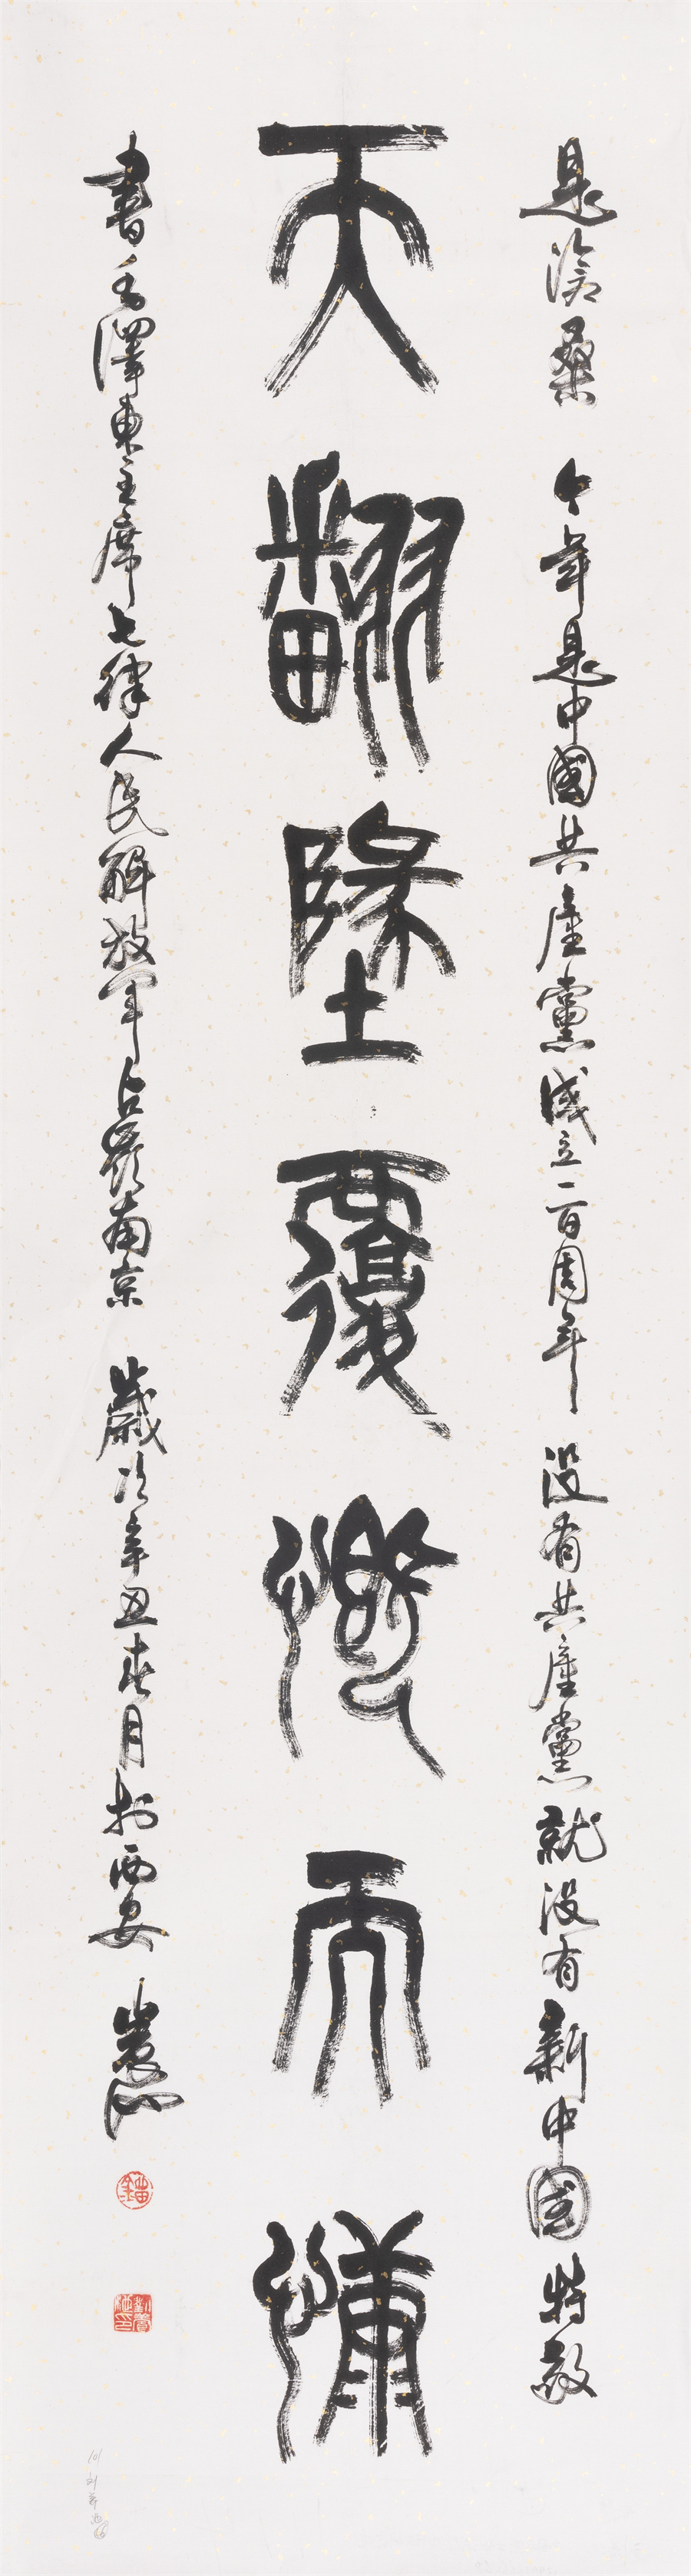 是滄桑 今年是中國共產黨成立一百周年 没有共產黨就没有新中國 特敬
天翻墬覆慨而慷
書毛澤東主席七律人民解放军占領南京 歲次辛丑春月於西安